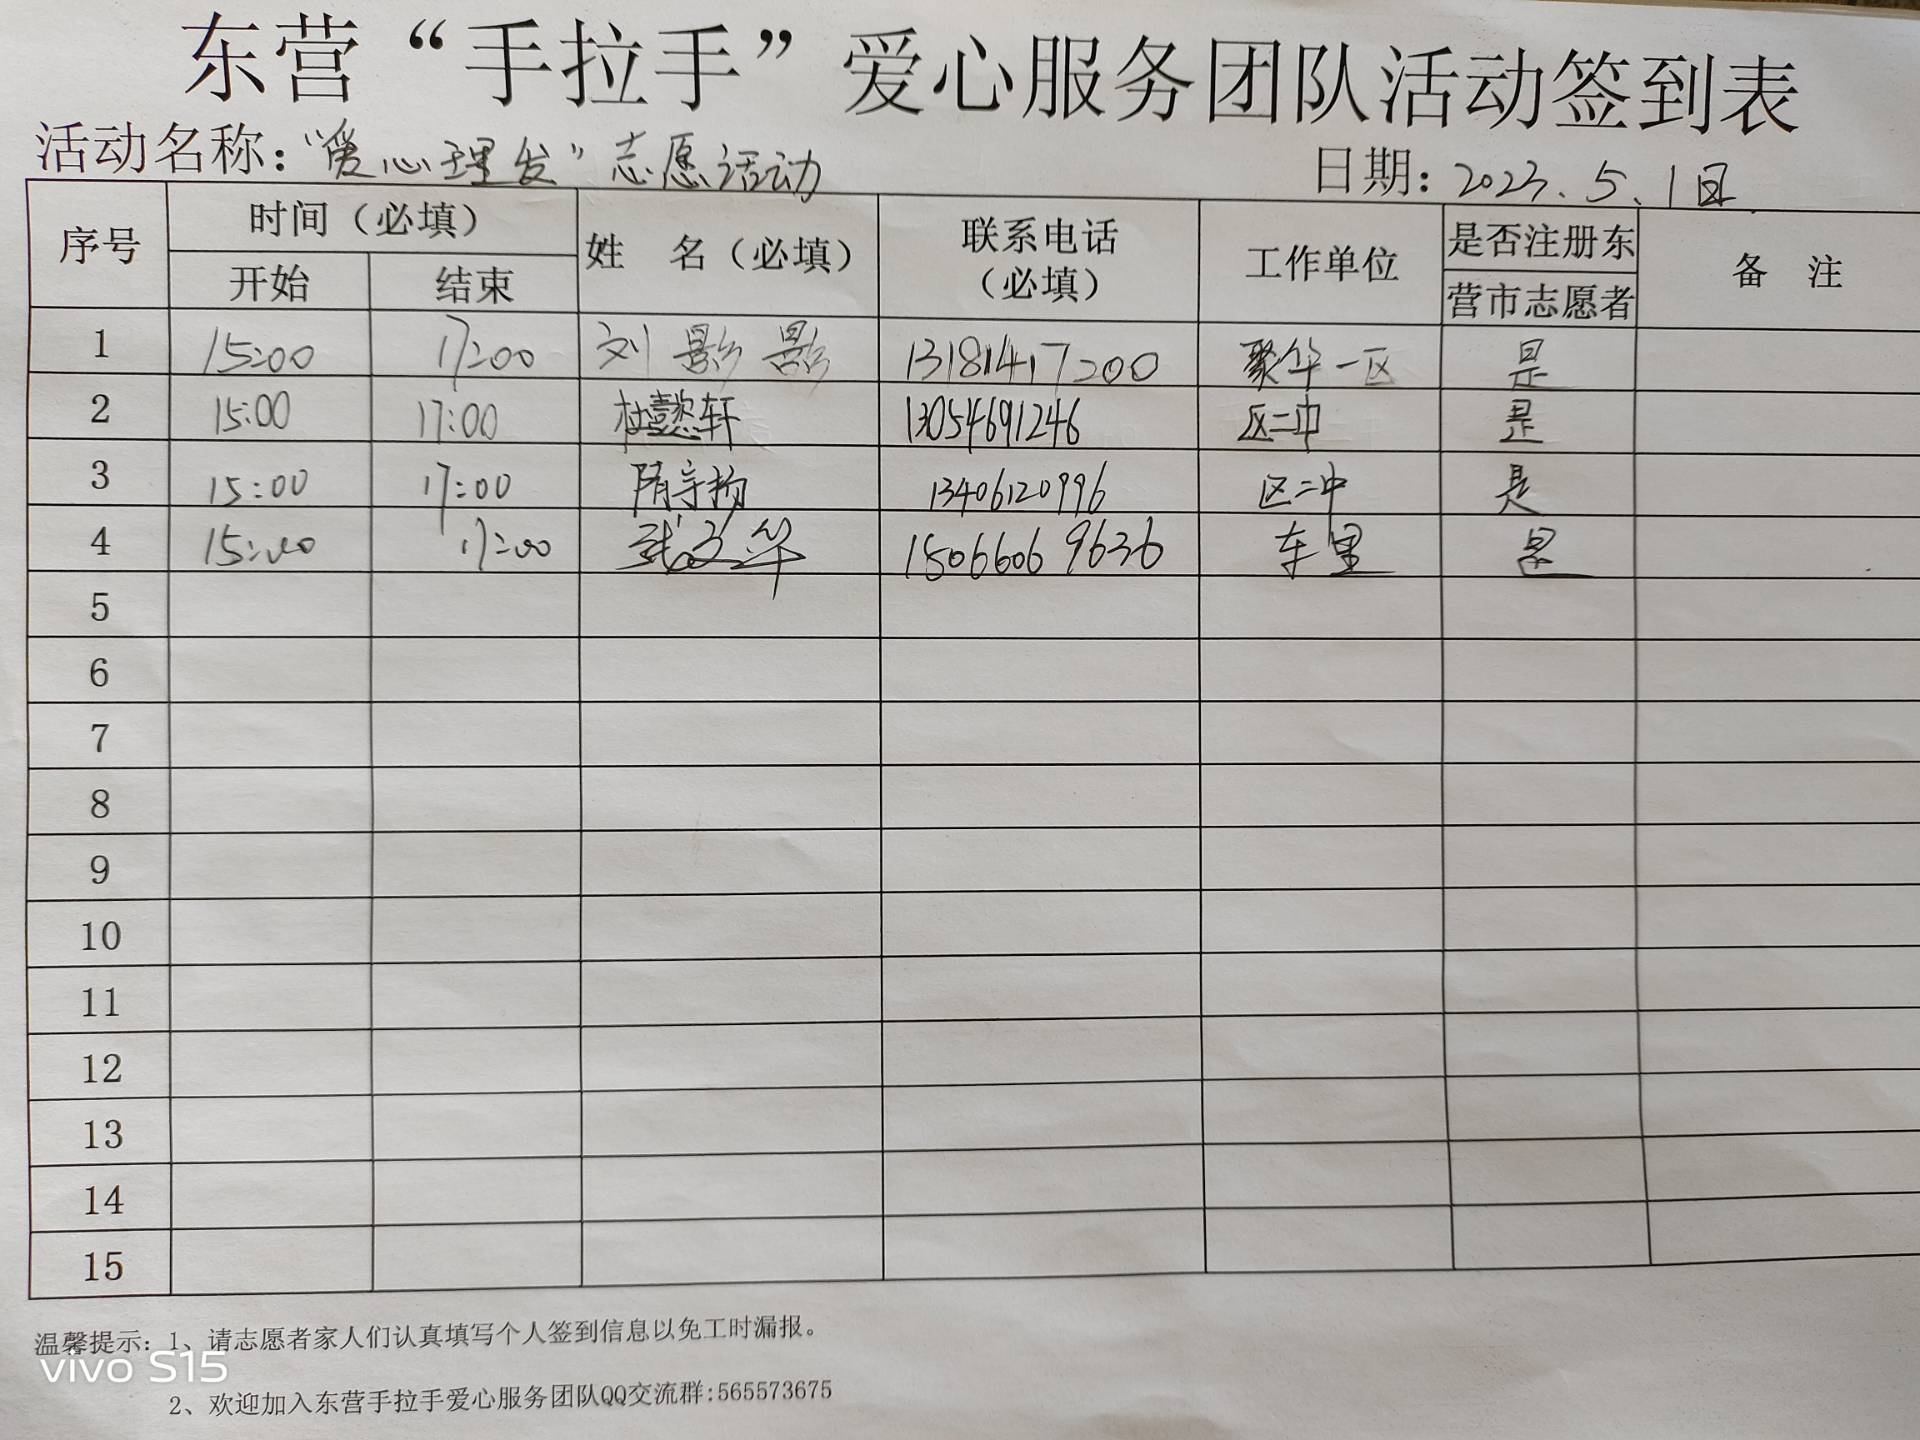 东营“手拉手”爱心服务团队活动签到表
活动名称：“爱心理发”志愿活动 日期：2023.5.1日
序号 时间（必填） 姓 名（必填） 联系电话（必填） 工作单位 是否注册东营市志愿者 备 注
开始 结束
1 15:00 17:00 刘影影 13181417200 聚华一区 是
2 15:00 17:00 杜懿轩 13054691246 区二中 是
3 15:00 17:00 隋宇扬 13406120996 区二中 是
4 15:00 17:00 文华 15066069636 车里 是
5
6
7
8
9
10
11
12
13
14
15
温馨提示：1、请志愿者家人们认真填写个人签到信息以免工时漏报。
vivo S15
2、欢迎加入东营手拉手爱心服务团队QQ交流群:565573675